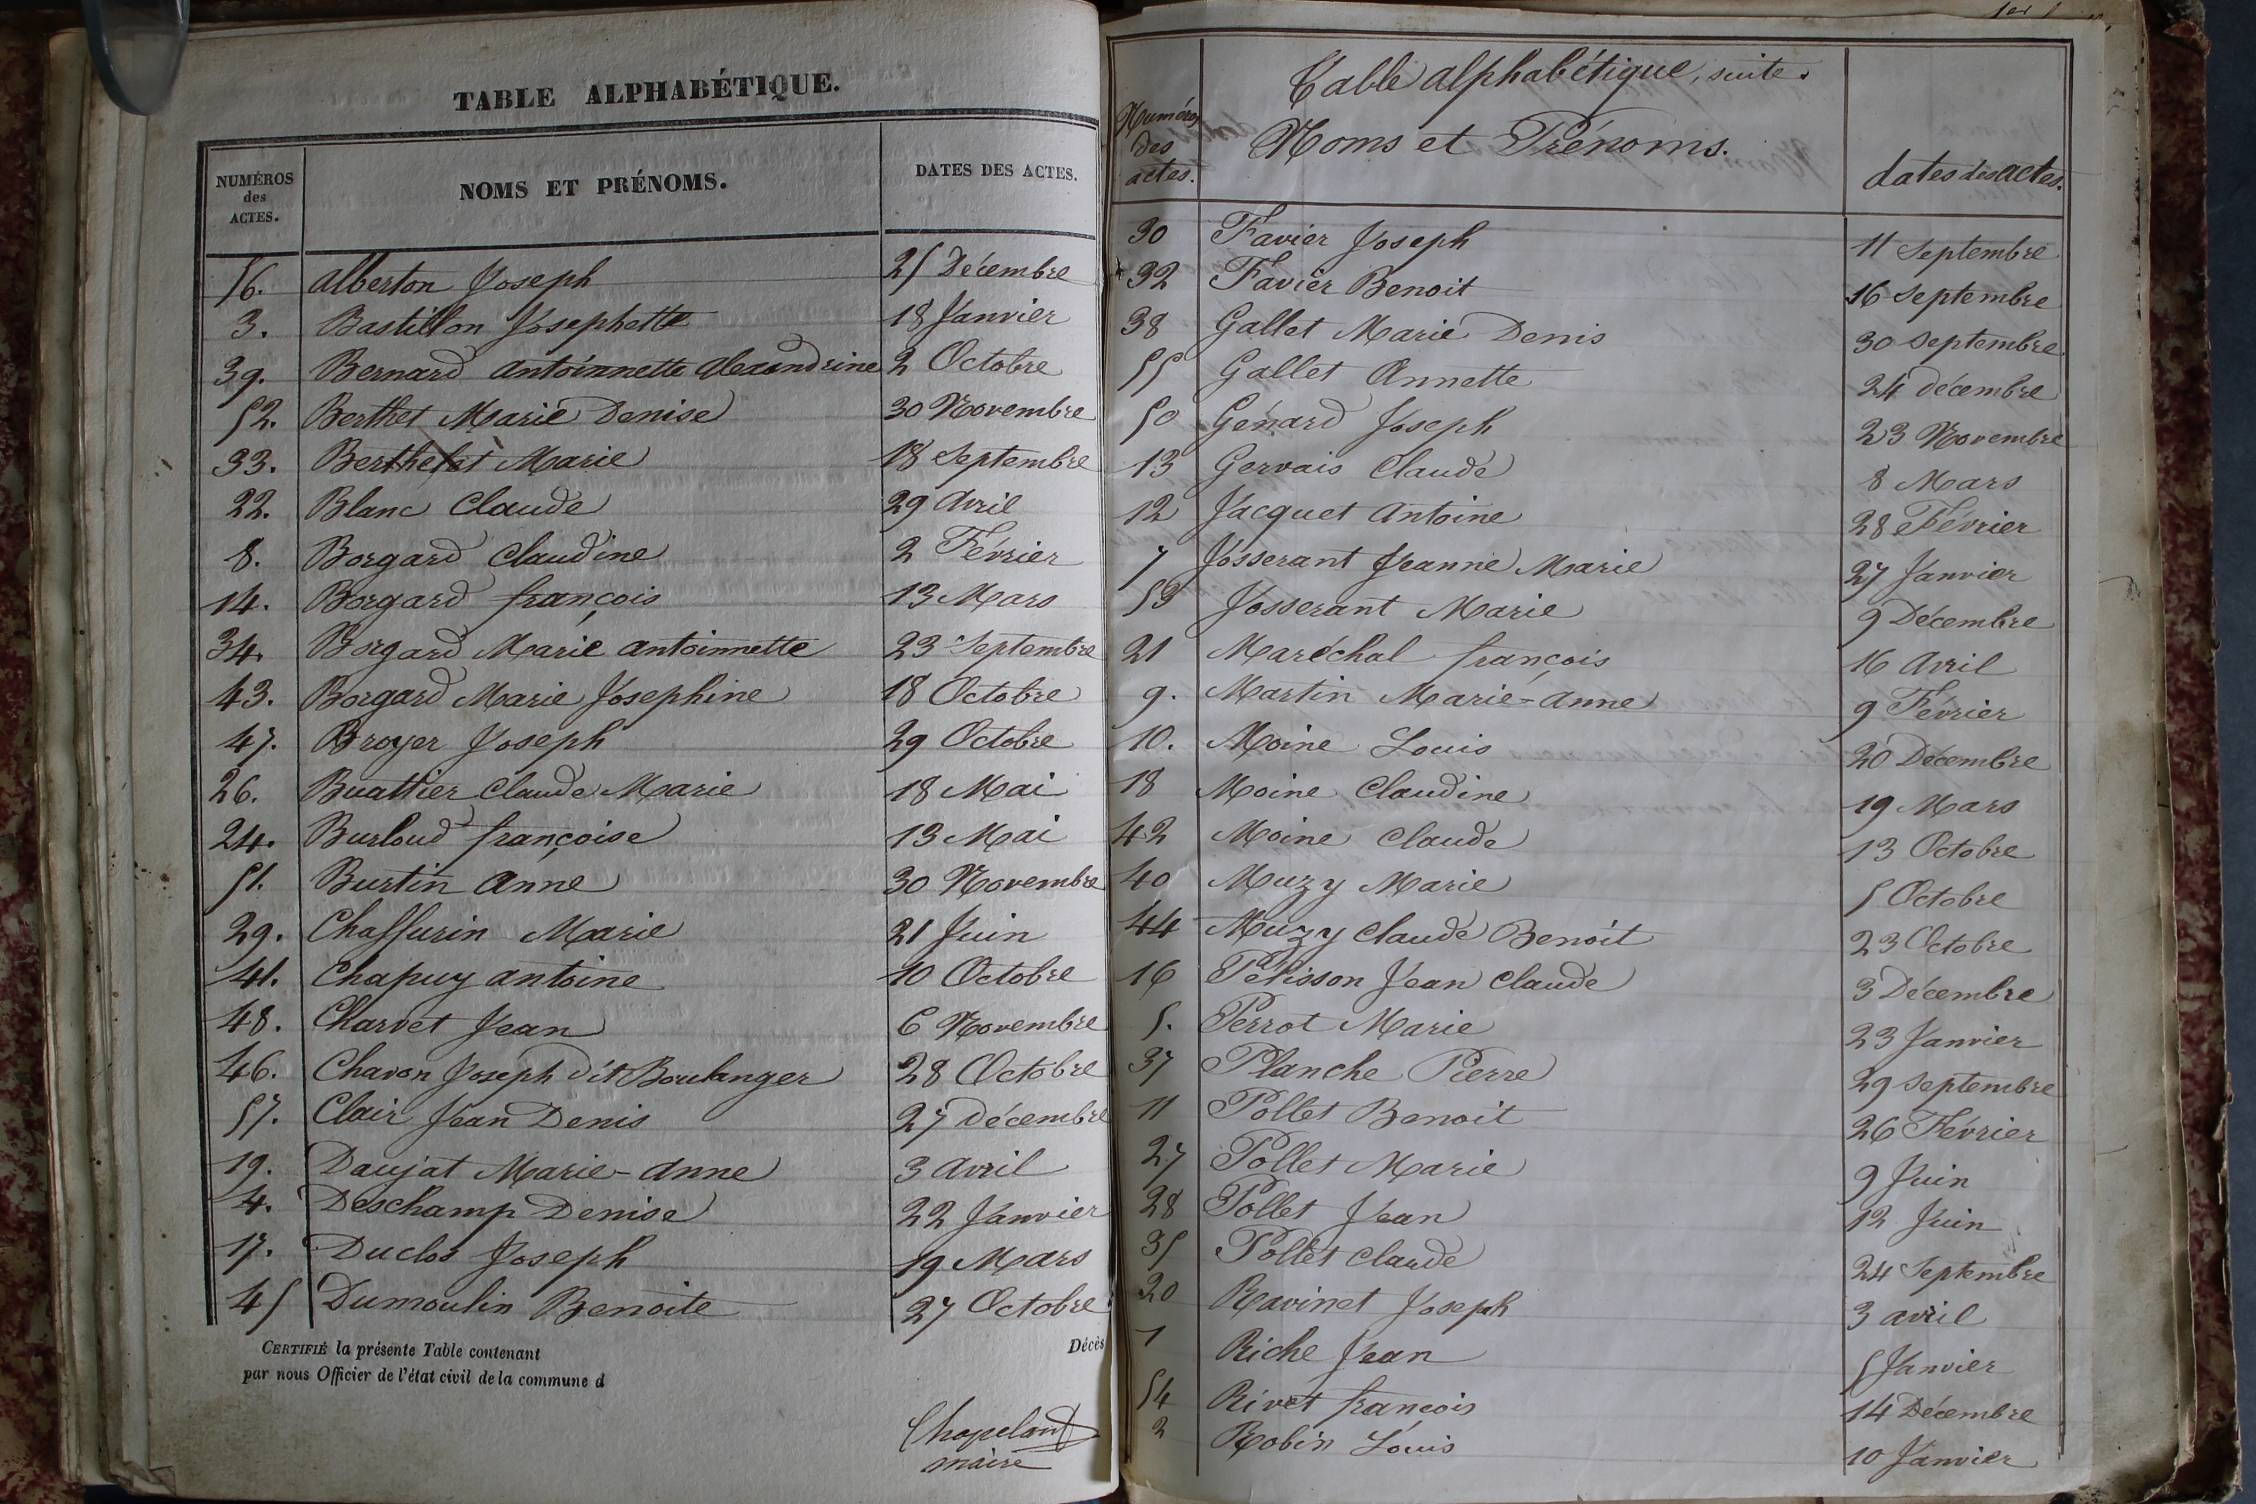 TABLE ALPHABÉTIQUE.
NUMÉROS des ACTES. NOMS ET PRÉNOMS. DATES DES ACTES.
56. Alberton Joseph 25 Décembre
3. Bastillon Josephette 18 Janvier
39. Bernard Antoinnette Alexandrine 2 Octobre
52. Berthet Marie Denise 30 Novembre
33. Berthelet Marie 18 Septembre
22. Blanc Claude 29 Avril
8. Borgard Claudine 2 Février
14. Borgard françois 13 Mars
34. Borgard Marie Antoinnette 23 Septembre
43. Borgard Marie Josephine 18 Octobre
47. Broyer Joseph 29 Octobre
26. Buattier Claude Marie 18 Mai
24. Burloud françoise 13 Mai
51. Burtin Anne 30 Novembre
29. Chaffurin Marie 21 Juin
41. Chapuy Antoine 10 Octobre
48. Charvet Jean 6 Novembre
46. Chavon Joseph dit Boulanger 28 Octobre
57. Clair Jean Denis 27 Décembre
19. Daujat Marie-Anne 3 Avril
4. Deschamp Denise 22 Janvier
17. Duclos Joseph 19 Mars
45 Dumoulin Benoite 27 Octobre
CERTIFIÉ la présente Table contenant Décès
par nous Officier de l'état civil de la commune d
Chapeland
maire
Table alphabétique, suite.
Numéros des actes. Noms et Prénoms. dates des actes.
30 Favier Joseph 11 Septembre
32 Favier Benoit 16 Septembre
38 Gallet Marie Denis 30 Septembre
55 Gallet Annette 24 Décembre
50 Génard Joseph 23 Novembre
13 Gervais Claude 8 Mars
12 Jacquet Antoine 28 Février
7 Josserant Jeanne Marie 27 Janvier
53 Josserant Marie 9 Décembre
21 Maréchal françois 16 Avril
9. Martin Marie-Anne 9 Février
10. Moine Louis 20 Décembre
18 Moine Claudine 19 Mars
42 Moine Claude 13 Octobre
40 Muzy Marie 5 Octobre
44 Muzy Claude Benoit 23 Octobre
16 Pelisson Jean Claude 3 Décembre
5. Perrot Marie 23 Janvier
37 Planche Pierre 29 Septembre
11 Pollet Benoit 26 Février
27 Pollet Marie 9 Juin
28 Pollet Jean 12 Juin
35 Pollet Claude 24 Septembre
20 Ravinet Joseph 3 avril
1 Riche Jean 5 Janvier
54 Rivet francois 14 Décembre
2 Robin Louis 10 Janvier